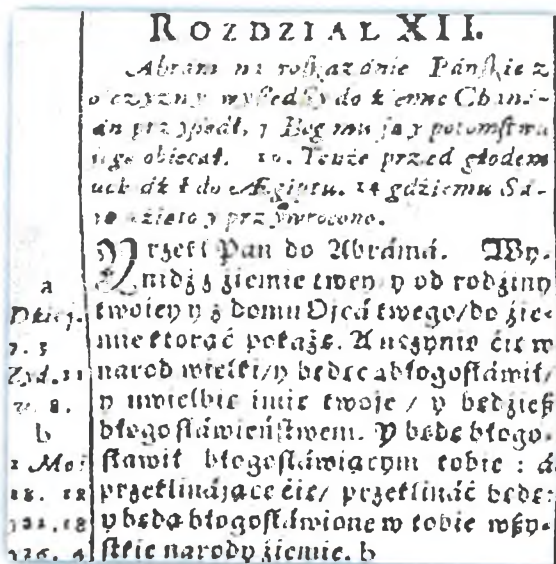 ROZDZIAŁ XII.
Abram na roskazánie Páńskie z
oyczyzny wyszedszy do ziemie Chana-
án przyszedł, y Bog mu ją y potomstwu
iego obiecał. 10. Tenże przed głodem
do Ægiptu. 14 gdzie mu Sá-
rę wzięto y przywrocono.
Y rzekł Pan do Abrámá. Wy-
nidź z ziemie twey y od rodziny
twoiey y z domu Ojcá twego/ do zie-
mie ktorąć pokażę. A uczynię cię w
narod wielki/ y będęć błogosłáwił/
y uwielbię imię twoje / y będziesz
błogosłáwieństwem. Y będę błogo-
słáwił błogosłáwiącym tobie : á
przeklináiące cię/ przeklináć będę:
y będą błogosłáwione w tobie wszy-
stkie narody ziemie. b
a
Dziej.
7. 3
Zyd. 11
v. 8.
b
1 Moj
18. 18